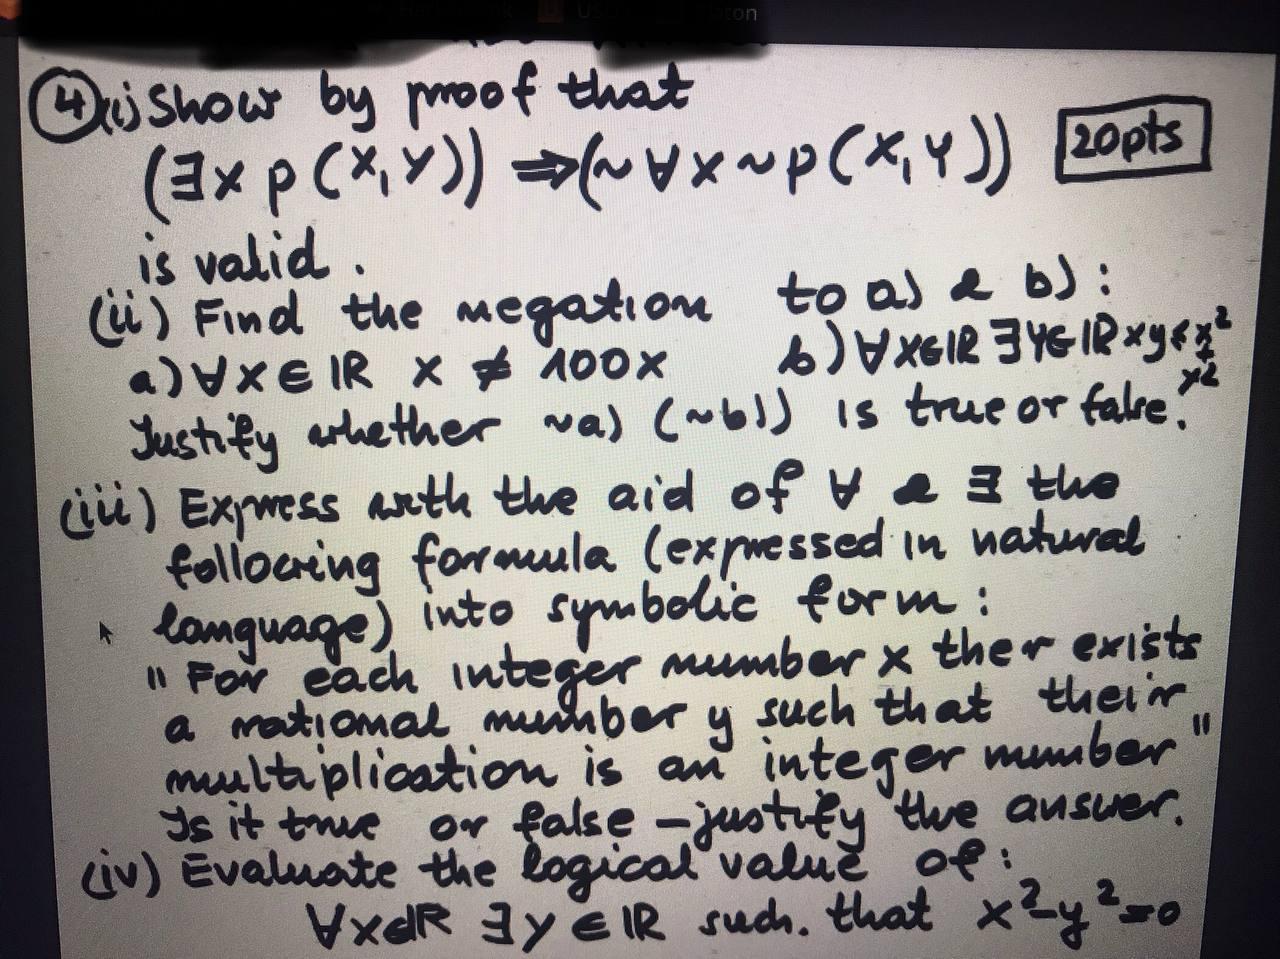 ④(i) Show by proof that
(∃x p(x,y)) ⇒ (~∀x~p(x,y))
20pts
is valid.
(ii) Find the negation to a) & b):
a) ∀x∈IR x ≠ 100x b) ∀x∈IR ∃y∈IR xy<x²+y²
Justify whether ~a) (~b)) is true or false.
(iii) Express with the aid of ∀ & ∃ the
following formula (expressed in natural
language) into symbolic form:
"For each integer number x ther exists
a rational number y such that their
multiplication is an integer number"
Is it true or false - justify the answer.
(iv) Evaluate the logical value of:
∀x∈IR ∃y∈IR such. that x²-y²=0